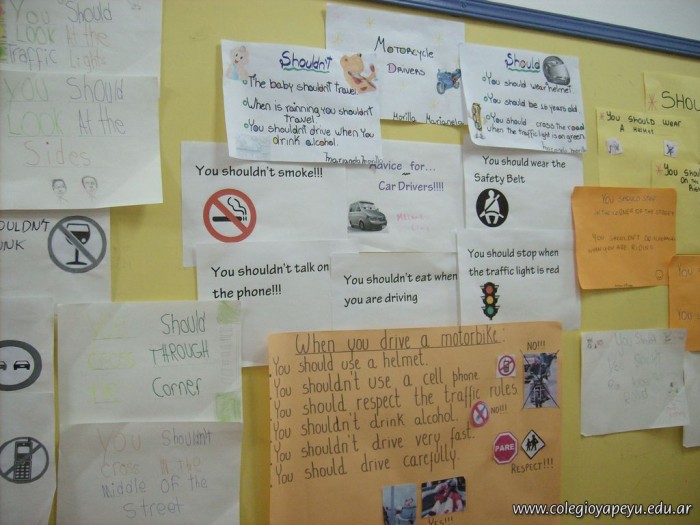 You Should
Look At the
Traffic Lights
You Should
Look At the
Sides
OULDN'T
NK
You Should
CROSS THROUGH
Corner
You Shouldn't
cross in the
middle of the
street
Shouldn't
The baby shouldn't travel
When is rainning you shouldn't
travel
You shouldn't drive when you
drink alcohol.
Motorcycle
Drivers
Morilla Marianela
Should
You should wear helmet.
You should be 16 years old
You should cross the road
when the traffic light is on green
You shouldn't smoke!!!
Advice for...
Car Drivers!!!!
You should wear the
Safety Belt
You shouldn't talk on
the phone!!!
You shouldn't eat when
you are driving
You should stop when
the traffic light is red
When you drive a motorbike:
You should use a helmet.
You shouldn't use a cell phone
You should respect the traffic rules.
You shouldn't drink alcohol.
You shouldn't drive very fast.
You should drive carefully.
NO!!!
NO!!!
PARE
RESPECT!!!
YES!!!
SHOU
YOU SHOULD WEAR
A
YOU SHOULD
www.colegioyapeyu.edu.ar